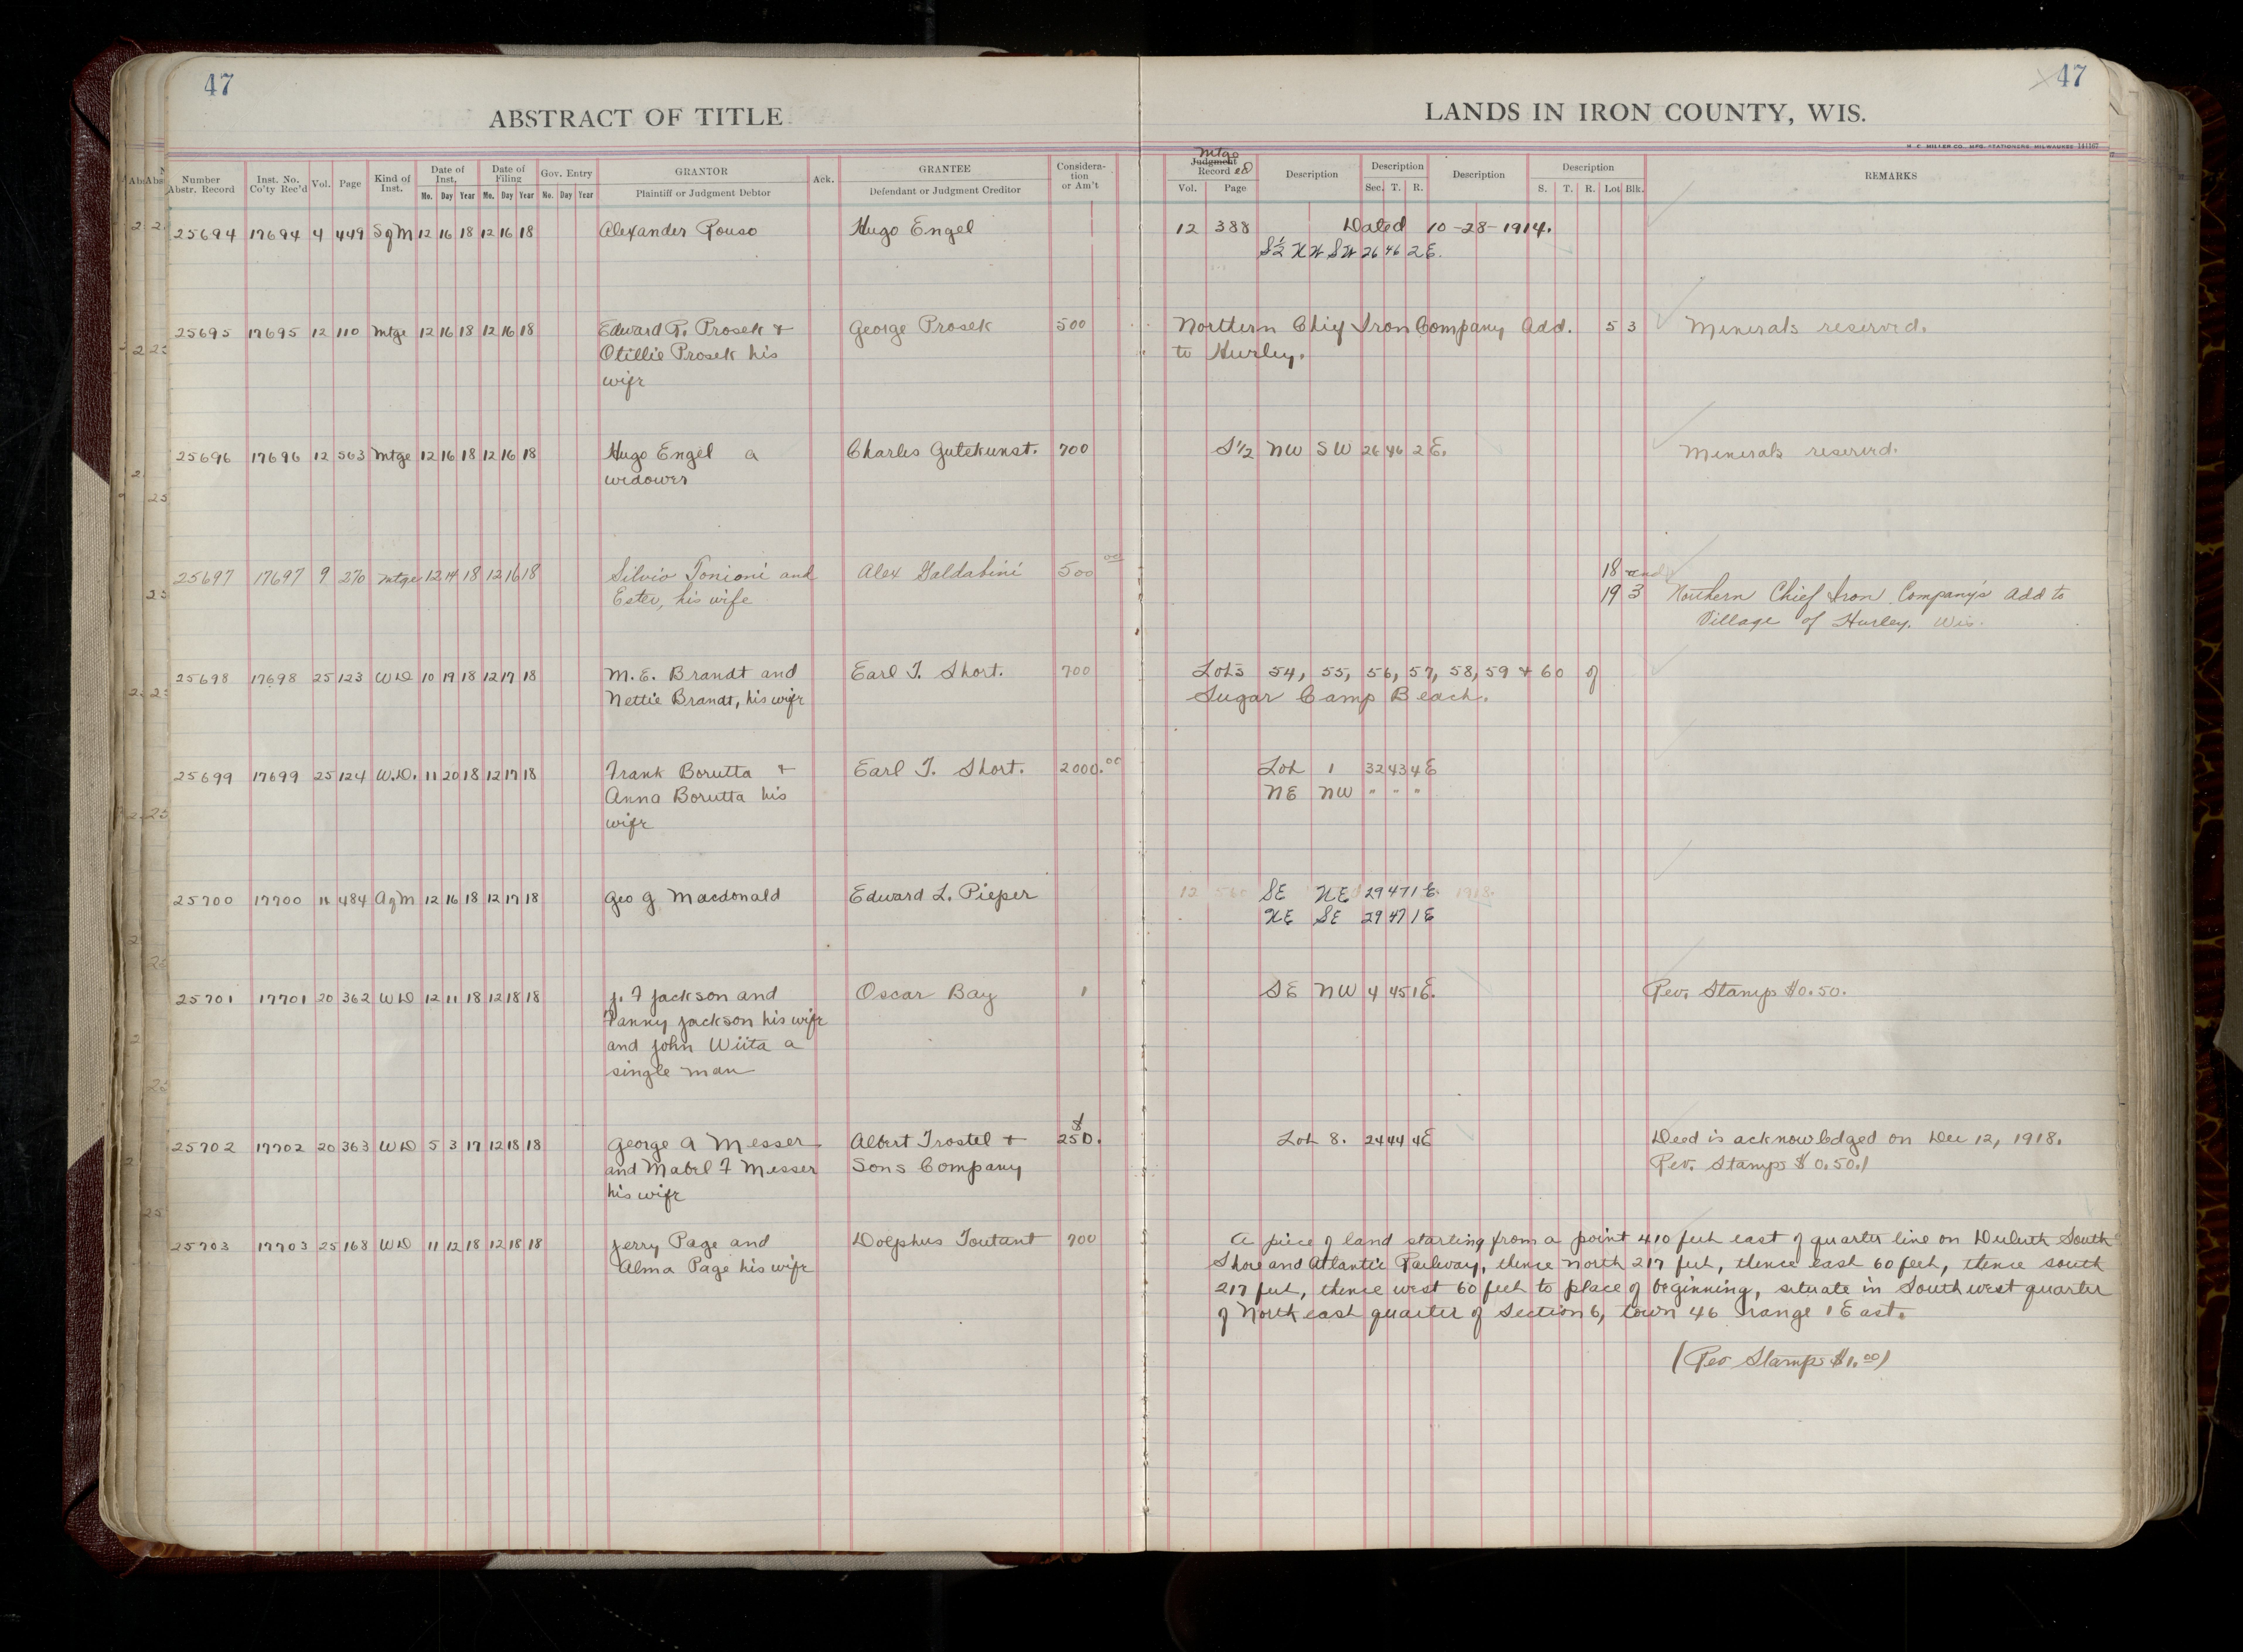 47
47
ABSTRACT OF TITLE
LANDS IN IRON COUNTY, WIS.
H. C. MILLER CO., MFG. STATIONERS, MILWAUKEE 141167
Number Abstr. Record Inst. No. Co'ty Rec'd Vol. Page Kind of Inst. Date of Inst. Mo. Day Year Date of Filing Mo. Day Year Gov. Entry No. Day Year GRANTOR Plaintiff or Judgment Debtor Ack. GRANTEE Defendant or Judgment Creditor Considera- tion or Am't Mtge Judgment Record Vol. Page Description Description Sec. T. R. Description Description S. T. R. Lot Blk. REMARKS
25694 17694 4 449 SgM 12 16 18 12 16 18 Alexander Rouso Hugo Engel 12 388 Dated 10-28-1914.
S½ NW SW 26 46 2E.
25695 17695 12 110 Mtge 12 16 18 12 16 18 Edward R. Prosek + George Prosek 500 Northern Chief Iron Company Add. 5 3 Minerals reserved.
Otillie Prosek his to Hurley.
wife
25696 17696 12 563 Mtge 12 16 18 12 16 18 Hugo Engel a Charles Gutekunst. 700 S1/2 NW SW 26 46 2E. Minerals reserved.
widower
25697 17697 9 270 Mtge 12 14 18 12 16 18 Silvio Tonioni and Alex Galdabini 500 00 18 and
Ester, his wife 19 3 Northern Chief Iron Company's Add to
Village of Hurley. Wis.
25698 17698 25 123 WD 10 19 18 12 17 18 M. E. Brandt and Earl T. Short. 700 Lots 54, 55, 56, 57, 58, 59 + 60 of
Nettie Brandt, his wife Sugar Camp Beach.
25699 17699 25 124 W.D. 11 20 18 12 17 18 Frank Borutta + Earl T. Short. 2000.00 Lot 1 32 43 4E
Anna Borutta his NE NW " " "
wife
25700 17700 11 484 AgM 12 16 18 12 17 18 Geo G Macdonald Edward L. Pieper 12 560 SE NE 29 47 1E. 1918.
NE SE 29 47 1E
25701 17701 20 362 WD 12 11 18 12 18 18 J. F Jackson and Oscar Bay 1 SE NW 4 45 1E. Rev. Stamps $0.50.
Fanny Jackson his wife
and John Wiita a
single man
25702 17702 20 363 WD 5 3 17 12 18 18 George A Messer Albert Trostel + $250. Lot 8. 24 44 4E Deed is acknowledged on Dec 12, 1918.
and Mabel F Messer Sons Company Rev. Stamps $0.50./
his wife
25703 17703 25 168 WD 11 12 18 12 18 18 Jerry Page and Dolphus Toutant 700 A piece of land starting from a point 410 feet east of quarter line on Duluth South
Alma Page his wife Shore and Atlantic Railway, thence north 217 feet, thence east 60 feet, thence south
217 feet, thence west 60 feet to place of beginning, situate in Southwest quarter
of North east quarter of Section 6, town 46 range 1 East.
(Rev Stamps $1.00)